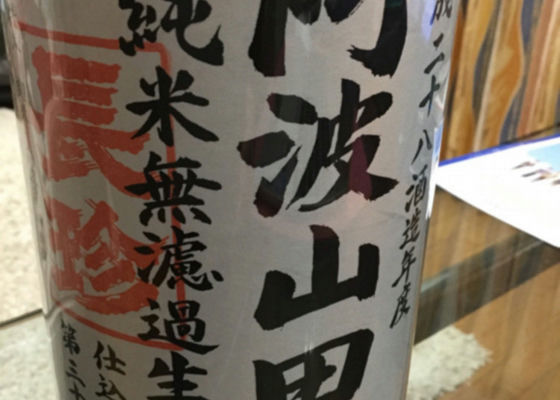 成二十八酒造年度
阿波山田
純米無濾過生
長珍
仕込
第三十